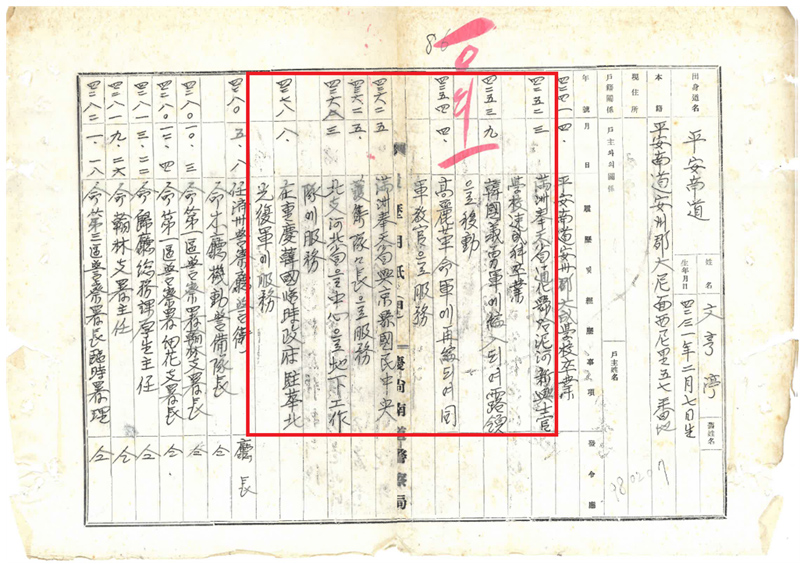 出身道名 平安南道 姓名 文亨淳
本籍 平安南道安州郡大尼面西尼里五七番地 生年月日 四二三一年二月七日生 舊姓名
現住所
戶籍關係 戶主와의關係 戶主姓名
年號 月 日 履歷및經歷事項 發令廳
四二四一 四 平安南道安州郡大成學校卒業
四二五二 三 滿洲奉天省通化縣哈泥河新興士官
學校速成科卒業
四二五三 九 韓國義勇軍에編入되여露領
으로移動
四二五四 四 高麗革命軍에再編되여同
軍敎官으로服務
慶尙南道警察局
四二六二 五 滿洲奉天省興京縣國民中央
隊長으로服務
四二六八 三 北支河北省을中心으로地下工作
隊에服務
四二七八 八 在重慶韓國臨時政府駐華北
光復軍에服務
四二八〇 五 八 任濟州警察廳警衛 廳長
命本廳機動警備隊長 仝
四二八〇 命第一區警察署翰林支署長 仝
四二八〇 命第一區警察署 支署長 仝
四二八一 三 二二 命歸廳總務課厚生主任 仝
四二八一 九 二六 命翰林支署主任 仝
四二八二 一 一八 命第三區警察署長臨時署理 仝